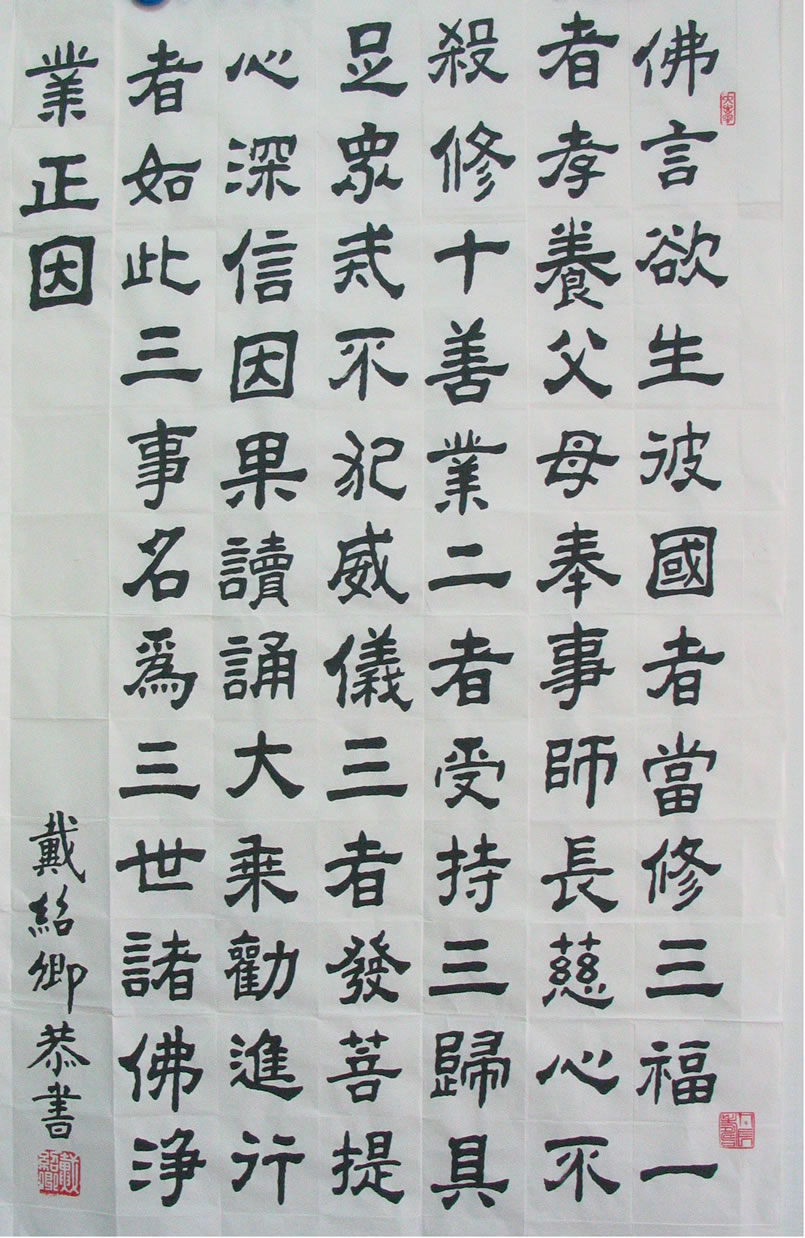 佛言欲生彼國者當修三福一
者孝養父母奉事師長慈心不
殺修十善業二者受持三歸具
足眾戒不犯威儀三者發菩提
心深信因果讀誦大乘勸進行
者如此三事名為三世諸佛淨
業正因
戴紹卿恭書